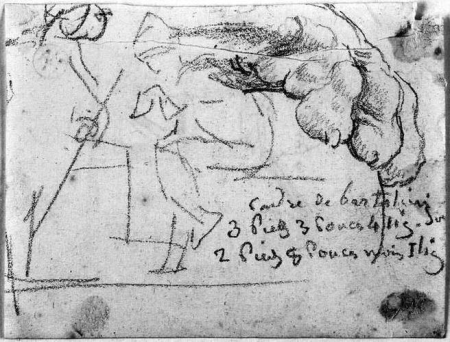 Cadre de bartolini
3 Pieds 3 Pouces 4 lig. Sur
2 Pieds 8 Pouces mois 1 lig